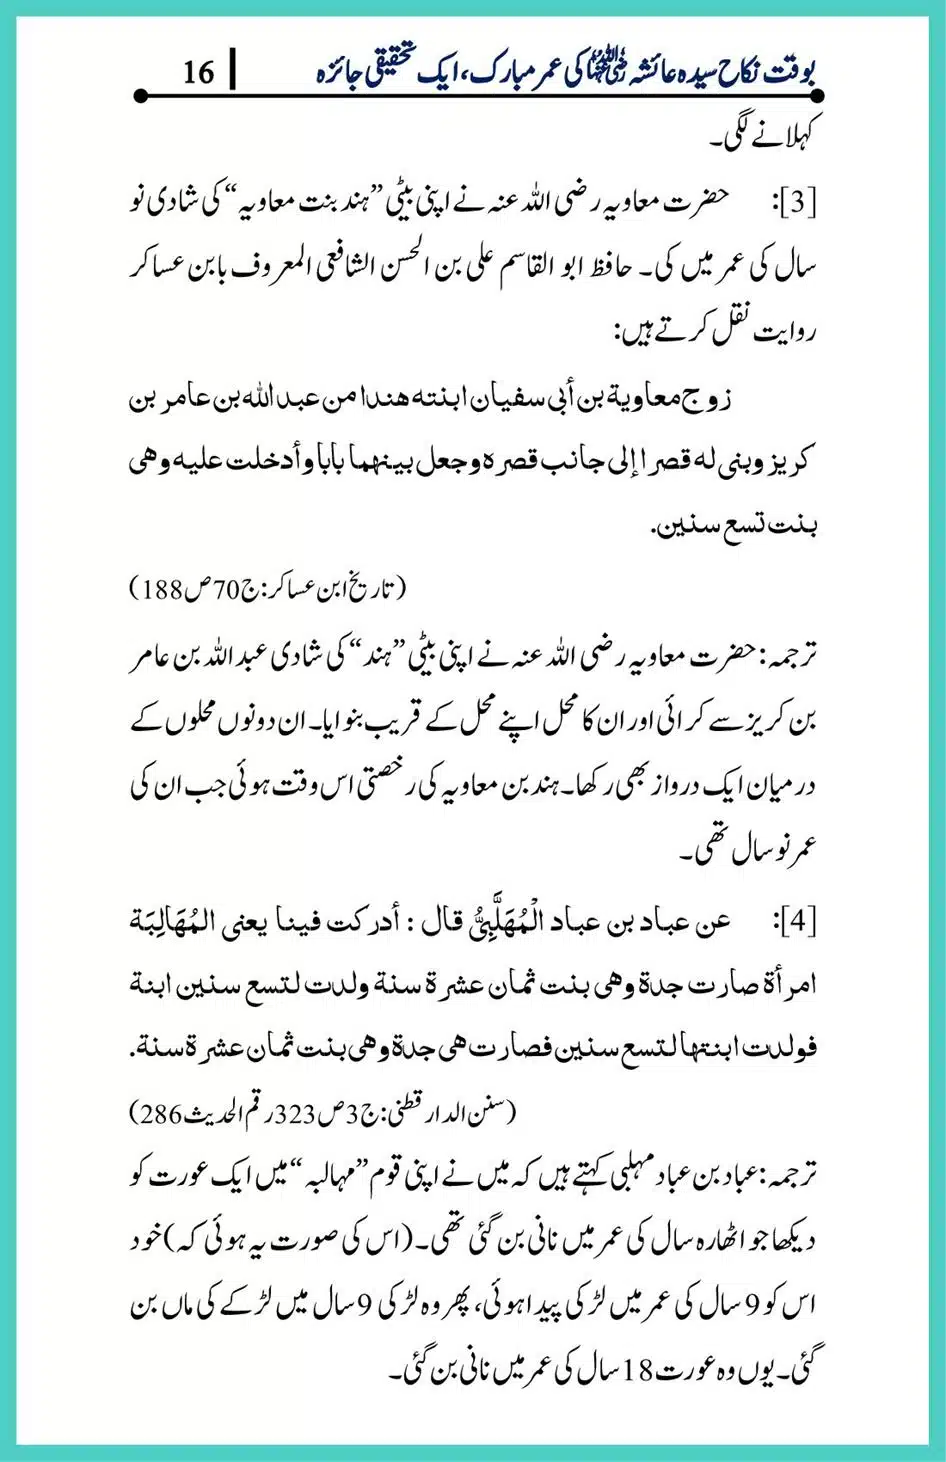 بوقت نکاح سیدہ عائشہ رضی اللہ عنہا کی عمر مبارک، ایک تحقیقی جائزہ 16
کہلانے لگی۔
[3]: حضرت معاویہ رضی اللہ عنہ نے اپنی بیٹی ”ہند بنت معاویہ“ کی شادی نو
سال کی عمر میں کی۔ حافظ ابو القاسم علی بن الحسن الشافعی المعروف بابن عساکر
روایت نقل کرتے ہیں:
زوج معاوية بن أبى سفيان ابنته هندا من عبد الله بن عامر بن
كريز وبنى له قصرا إلى جانب قصره وجعل بينهما بابا وأدخلت عليه وهى
بنت تسع سنين.
(تاریخ ابن عساکر: ج70 ص188)
ترجمہ: حضرت معاویہ رضی اللہ عنہ نے اپنی بیٹی ”ہند“ کی شادی عبد اللہ بن عامر
بن کریز سے کرائی اور ان کا محل اپنے محل کے قریب بنوایا۔ ان دونوں محلوں کے
درمیان ایک درواز بھی رکھا۔ ہند بن معاویہ کی رخصتی اس وقت ہوئی جب ان کی
عمر نو سال تھی۔
[4]: عن عباد بن عباد الْمُهَلَّبِىُّ قال : أدركت فينا يعنى المُهَالِبَة
امرأة صارت جدة وهى بنت ثمان عشرة سنة ولدت لتسع سنين ابنة
فولدت ابنتها لتسع سنين فصارت هى جدة وهى بنت ثمان عشرة سنة.
(سنن الدار قطنی: ج3 ص323 رقم الحدیث 286)
ترجمہ: عباد بن عباد مہلبی کہتے ہیں کہ میں نے اپنی قوم ”مہالبہ“ میں ایک عورت کو
دیکھا جو اٹھارہ سال کی عمر میں نانی بن گئی تھی۔ (اس کی صورت یہ ہوئی کہ) خود
اس کو 9 سال کی عمر میں لڑکی پیدا ہوئی، پھر وہ لڑکی 9 سال میں لڑکے کی ماں بن
گئی۔ یوں وہ عورت 18 سال کی عمر میں نانی بن گئی۔